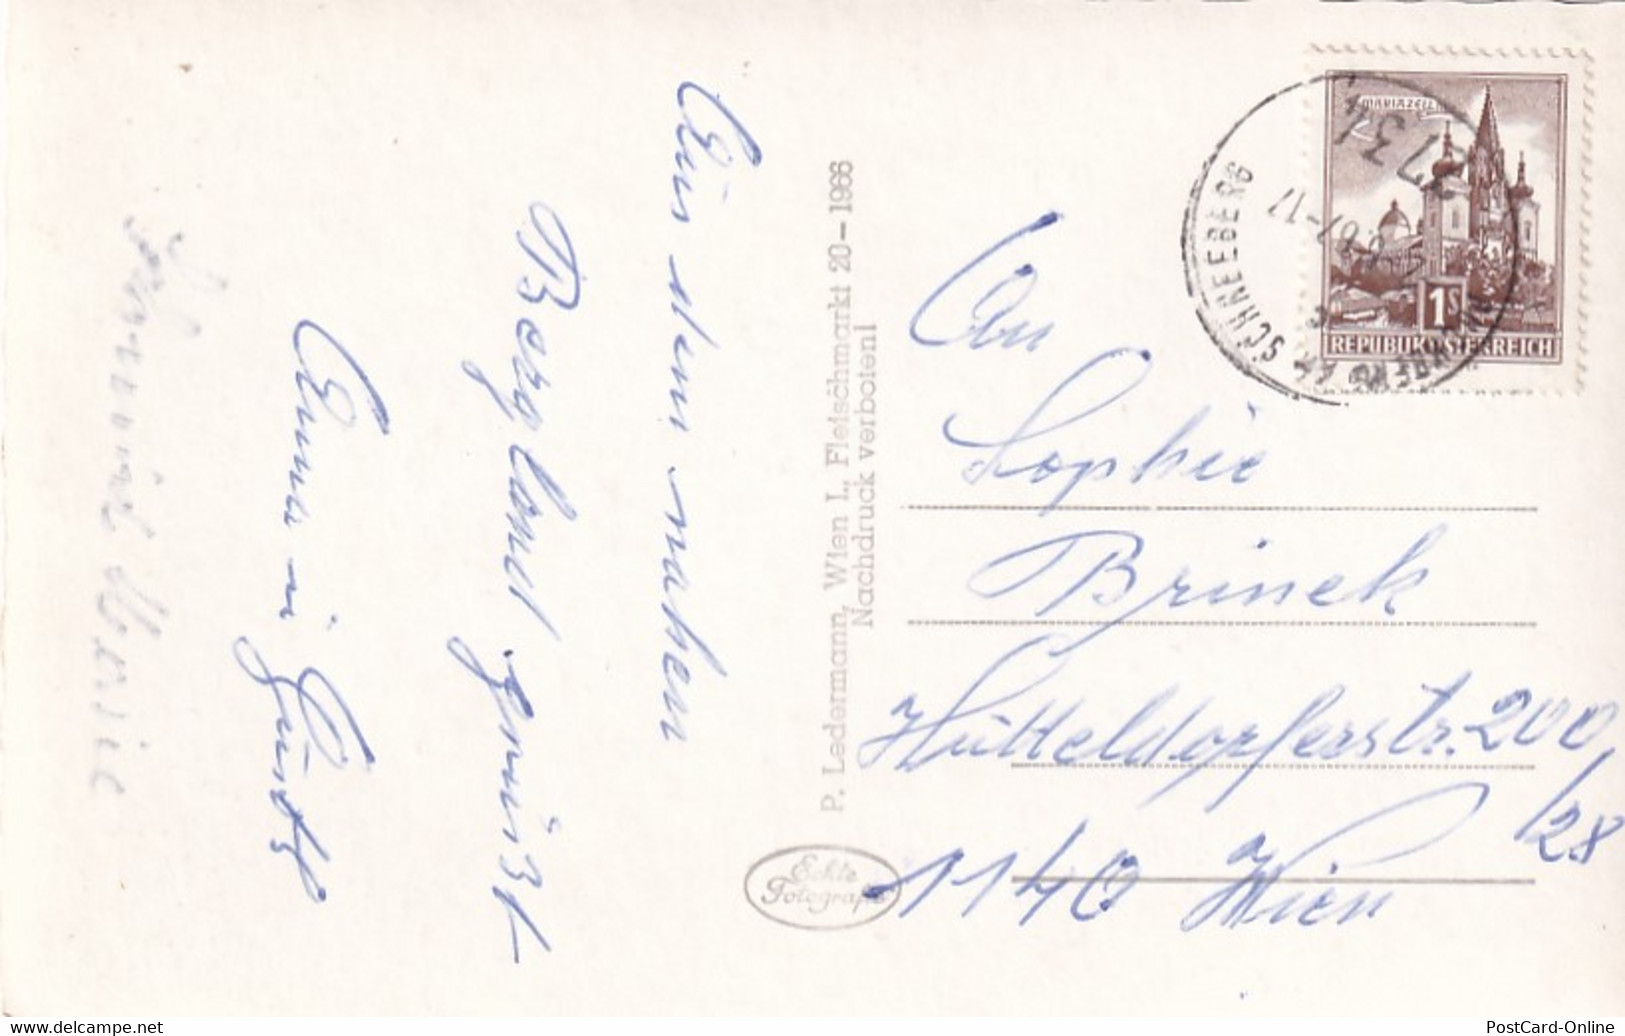 Aus dem nahen
Bergland grüsst
Anna u. Gustl
Marie
P. Ledermann, Wien I., Fleischmarkt 20 – 1966
Nachdruck verboten!
Echte
Fotografie
An
Sophie
Brinek
Hütteldorferstr. 200/28
1140 Wien
MARIAZELL
1S
REPUBLIK ÖSTERREICH
2734
PUCHBERG AM SCHNEEBERG
PostCard-Online
www.delcampe.net